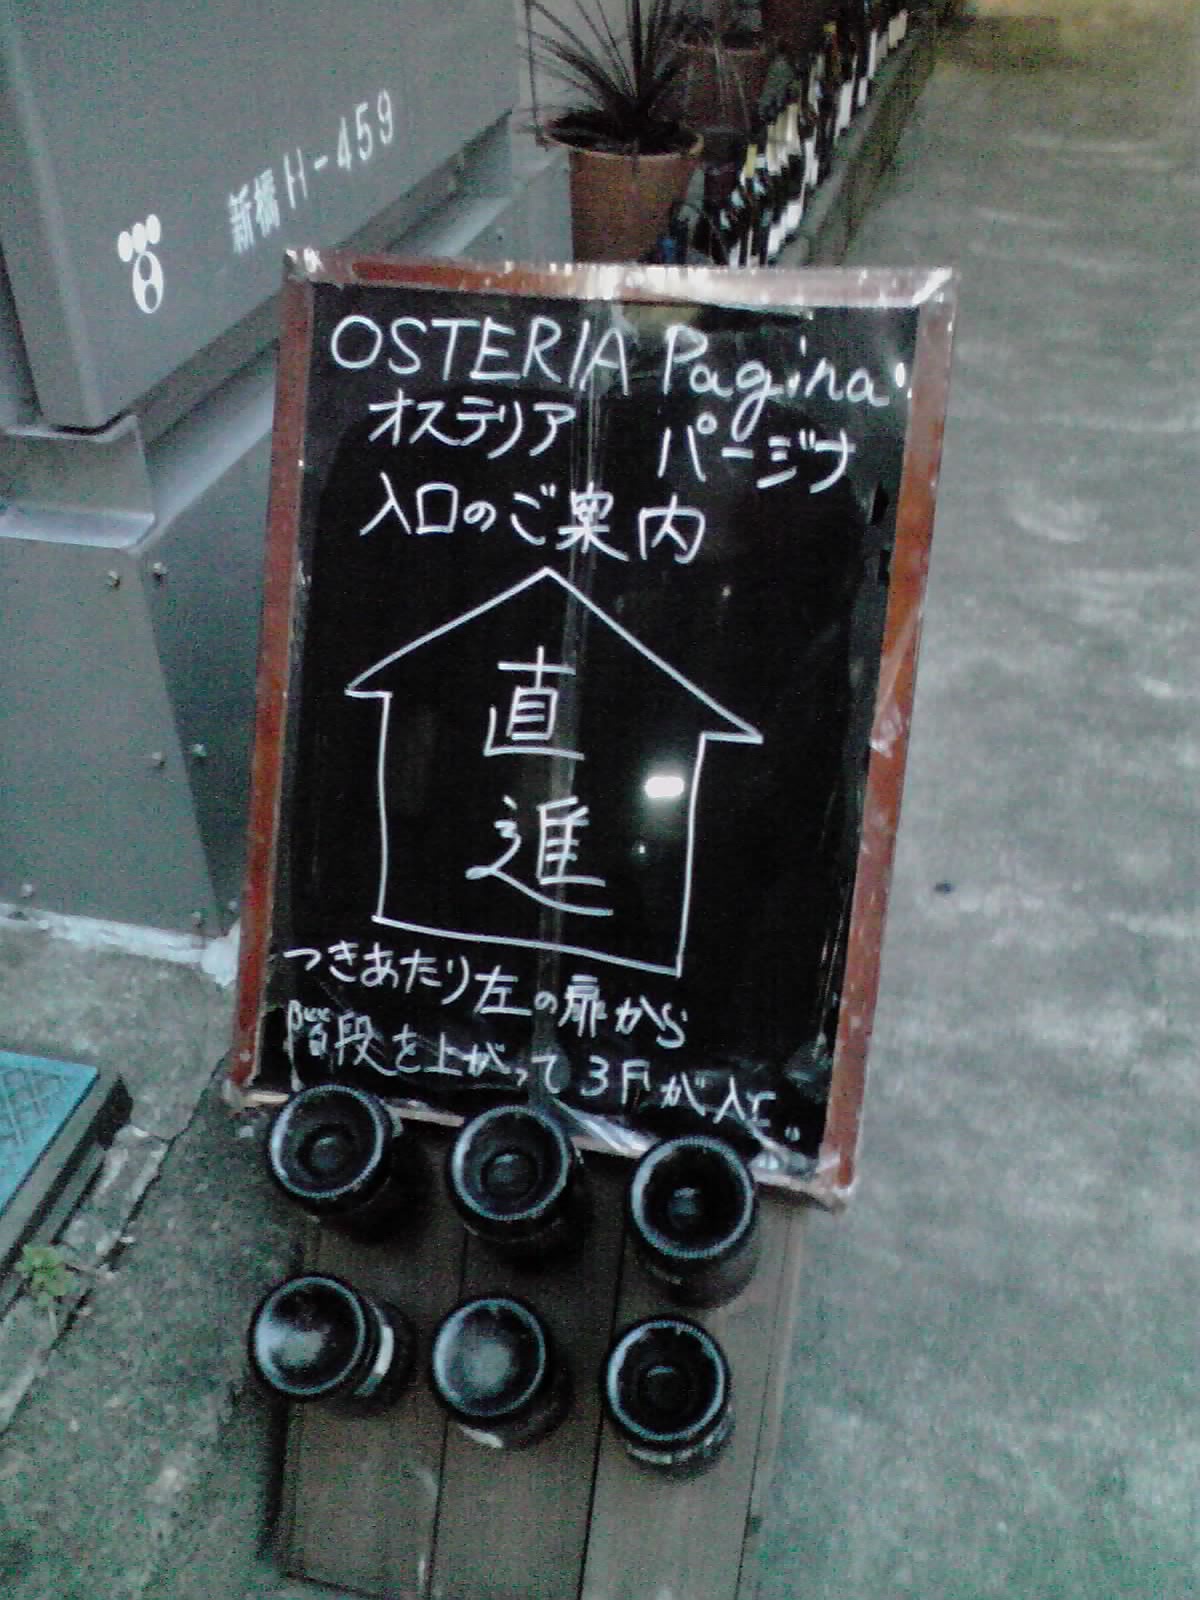 新橋H-459
OSTERIA Pagina
オステリア パージナ
入口のご案内
直
進
つきあたり左の扉から
階段を上がって3Fが入口。